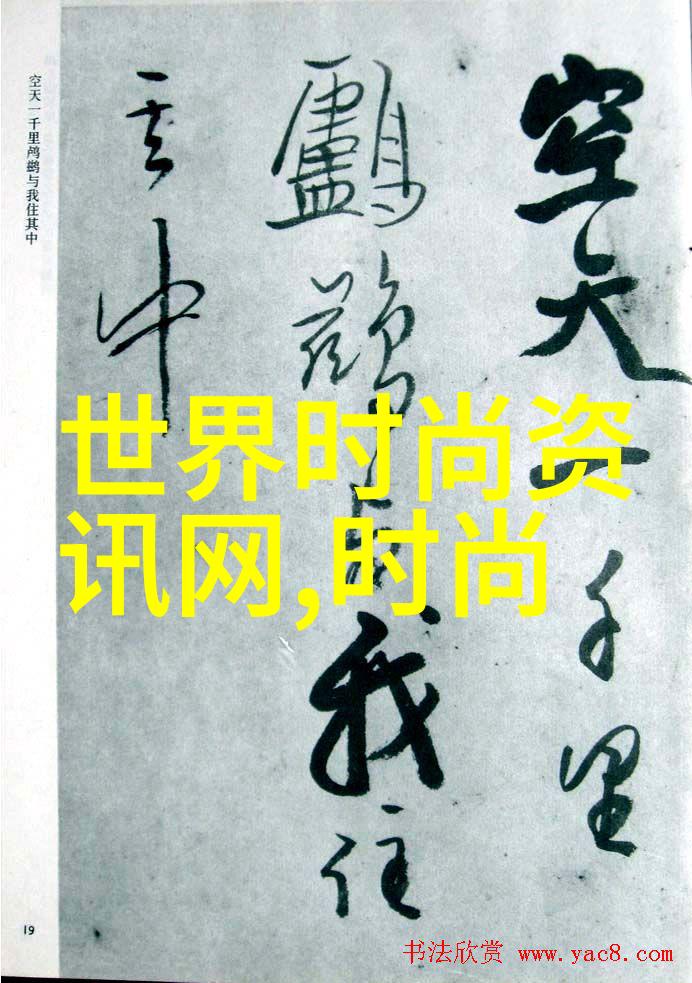 空天一千里
鸕鷀与我住
其中
空天一千里鸬鹚与我住其中
世界时尚资
讯网,时尚
19
书法欣赏 www.yac8.com